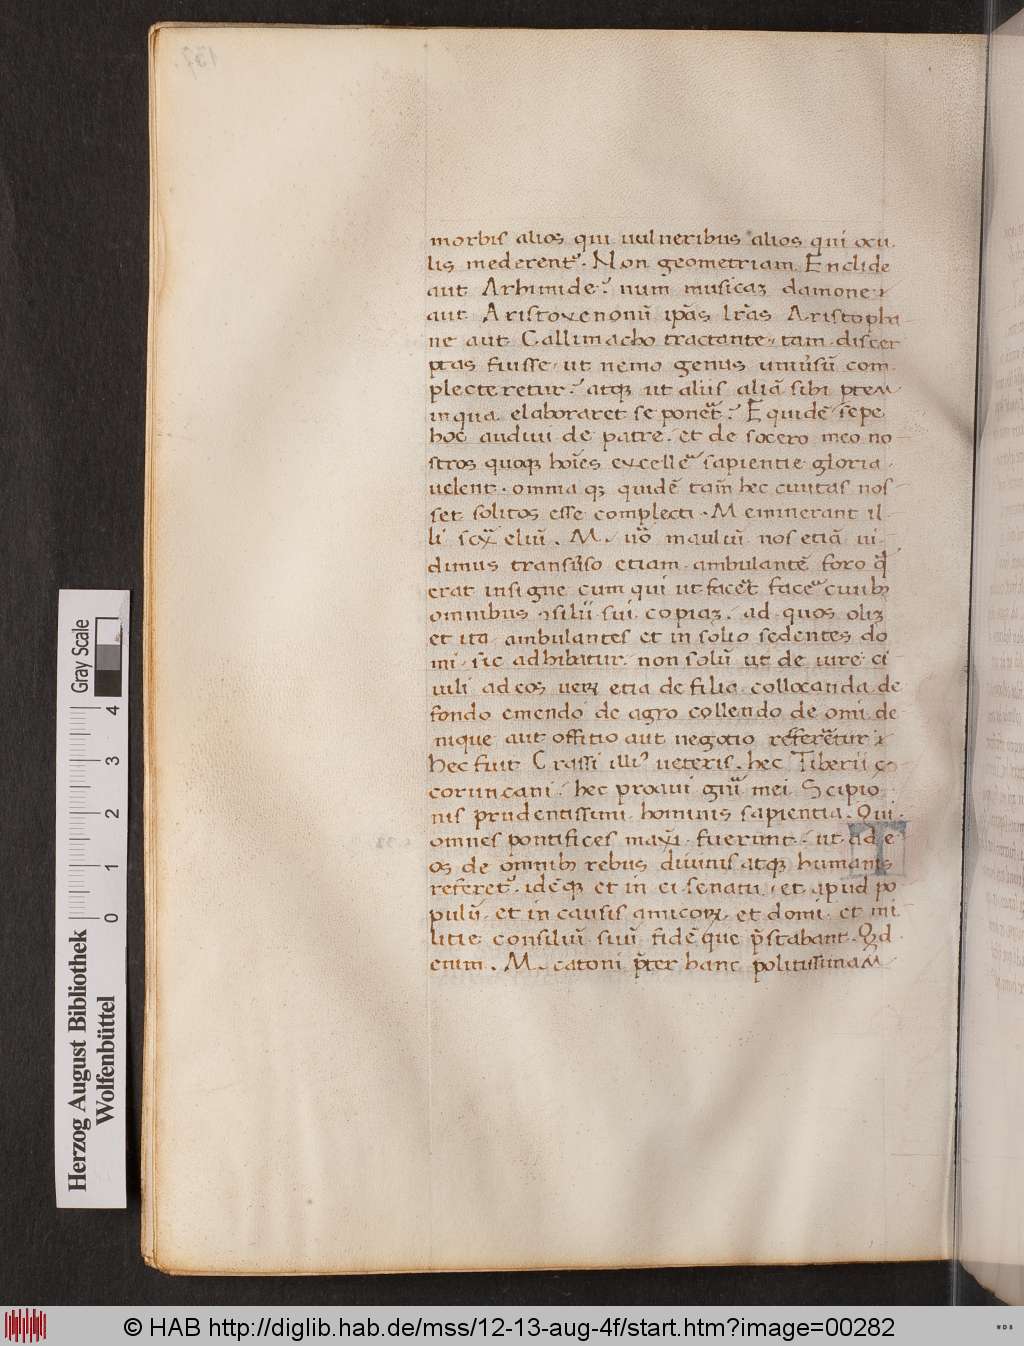 morbis alios qui uulneribus alios qui ocu
lis mederentᷣ. Non geometriam Euclide
aut Arhimide? num musicaꝫ damone
aut Aristoxenonū ipᷤas lr̄as Aristopha
ne aut Callimacho tractante, tam discer
ptas fuisse, ut nemo genus uniūsū com
plecteretur? atqꝫ ut aliis aliā sibi
in qua elaboraret se poner̄? Equidē sepe
hoc audiui de patre, et de socero meo no
stros quoqꝫ hoīes excellē sapientie gloria
uelent. omnia qꝫ quidē tam̄ hec ciuitas nos
set solitos esse complecti. Meminerant il
li eliū. M. uō mauliū nos etiā ui
dimus transūso etiam ambulantē foro
erat insigne eum qui ut facer̄ facer̄ ciuibꝫ
omnibus ꝯsilii sui copiaꝫ. ad quos oliꝫ
et ita ambulantes et in solio sedentes do
mi, sic adhibatur, non solū ut de iure ci
iuili ad eos ueꝝ etia de filia collocanda de
fondo emendo de agro collendo de omi de
nique aut offitio aut negotio referer̄tur
Hec fuit Crassi illiꝰ ueteris. hec Tiberii
coruncani. hec proaui mei Scipio
nis prudentissimi hominis sapientia. Qui
omnes pontifices maxī fuerunt. ut ad e
os de omnibꝫ rebus diuinis atqꝫ humanis
referetᷣ. idēqꝫ et in ei senatu, et apud po
pulū, et in causis amicoꝝ, et domi, et mi
litie consiliuū suū fidēque p̄stabant. Qd
enim. M. catoni p̄ter hanc politissimam
Herzog August Bibliothek
Wolfenbüttel
0 1 2 3 4
Gray Scale
© HAB http://diglib.hab.de/mss/12-13-aug-4f/start.htm?image=00282